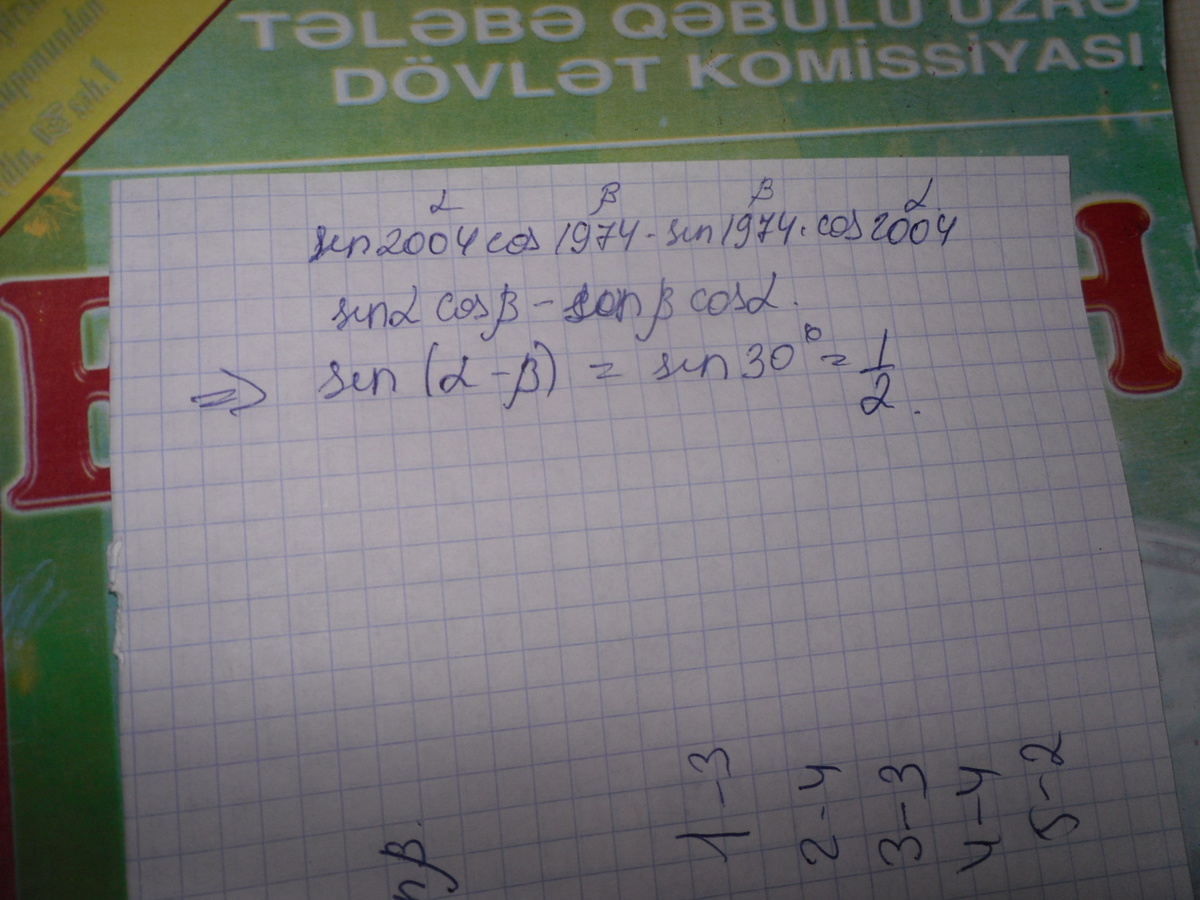 TƏLƏBƏ QƏBULU ÜZRƏ
DÖVLƏT KOMİSSİYASI
səh.1
α β β α
sin2004 cos 1974 - sin 1974 · cos 2004
sinα cosβ - sinβ cosα.
⇒ sin (α - β) = sin 30° = 1/2.
1-3
2-4
3-3
4-4
5-2
β.